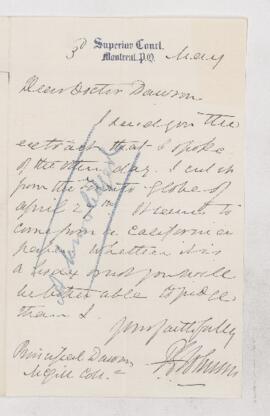 Superior Court.
Montreal, P.Q.
3d May
Dear Doctor Dawson
I send you the
extract that I spoke
of the other day. I cut it
from the Globe of
April 29th. It seems to
come from a California
paper. Whether it is
a hoax or not you will
be better able to judge
than I.
Yours faithfully
Principal Dawson
McGill Coll.